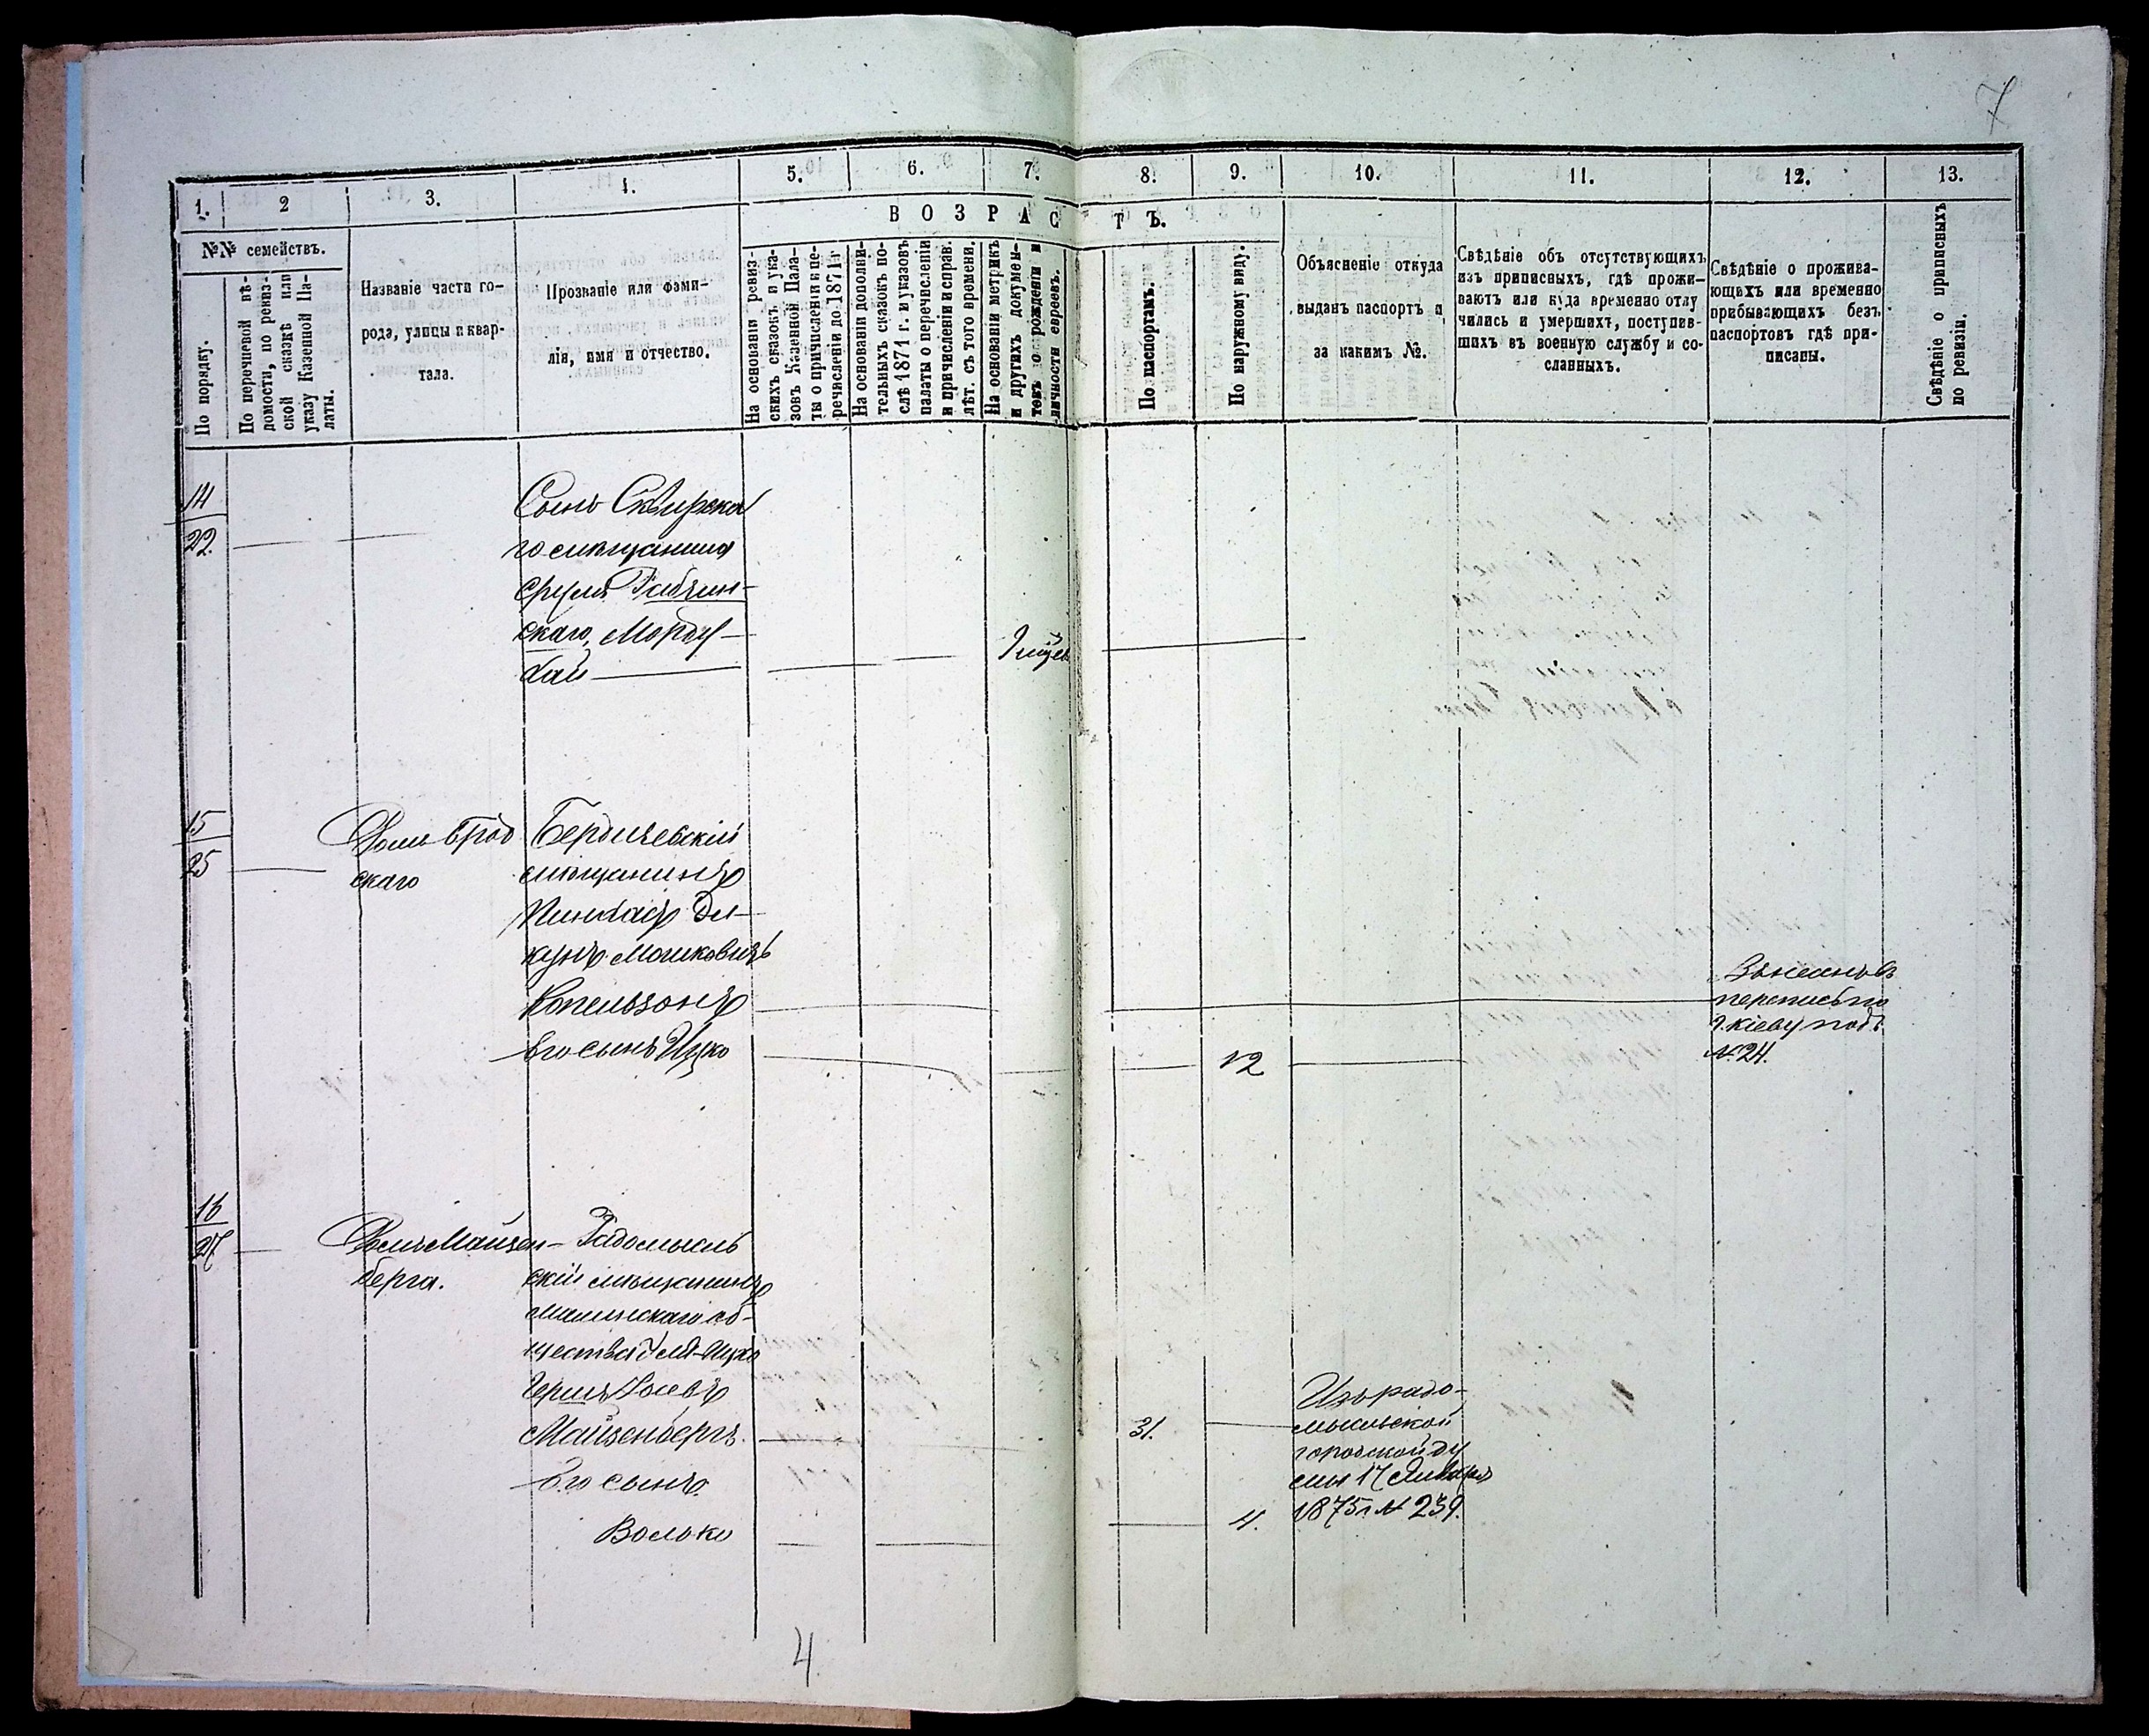 7
1.
2
3.
4.
5.
6.
7.
8.
9.
10.
11.
12.
13.
№№ семействъ.
ВОЗРАСТЪ.
По порядку.
По перечневой вѣ-
домости, по ревиз-
ской сказкѣ или
указу Казенной Па-
латы.
Названіе части го-
рода, улицы и квар-
тала.
Прозваніе или фами-
лія, имя и отчество.
На основаніи ревиз-
скихъ сказокъ и ука-
зовъ Казенной Пала-
ты о причисленіи и пе-
речисленіи до 1871 г
На основаніи дополни-
тельныхъ сказокъ по-
слѣ 1871 г. и указовъ
палаты о перечисленіи
и причисленіи и справ.
лѣт. съ того времени.
На основаніи метрикъ
и другихъ докумен-
товъ о рожденіи и
личности евреевъ.
По паспортамъ.
По наружному виду.
Объясненіе откуда
выданъ паспортъ и
за какимъ №.
Свѣдѣніе объ отсутствующихъ
изъ приписныхъ, гдѣ прожи-
ваютъ или куда временно отлу
чились и умершихъ, поступив-
шихъ въ военную службу и со-
сланныхъ.
Свѣдѣніе о прожива-
ющихъ или временно
прибывающихъ безъ
паспортовъ гдѣ при-
писаны.
Свѣдѣніе о приписныхъ
по ревизіи.
14
22.
Сынъ Сквирска
го мѣщанина
Сруля Рабчин-
скаго, Морду-
хай
15
25
Домъ Брод
скаго
Бердичевскій
мѣщанинъ
Пинхасъ Ди-
кунъ Мошковичъ
Копельзонъ
Его сынъ Ицко
12
перепись по
г. Кіеву подъ
№ 24.
16
27
Домъ Майзен-
берга.
Радомысль
скій мѣщанинъ
Малинскаго об-
щества Ицко
Герш Іосевъ
Майзенбергъ.
Его сынъ
Волько
31.
4.
Изъ радо-
мысльской
городской ду
мы 17 Января
1875 г № 239.
4